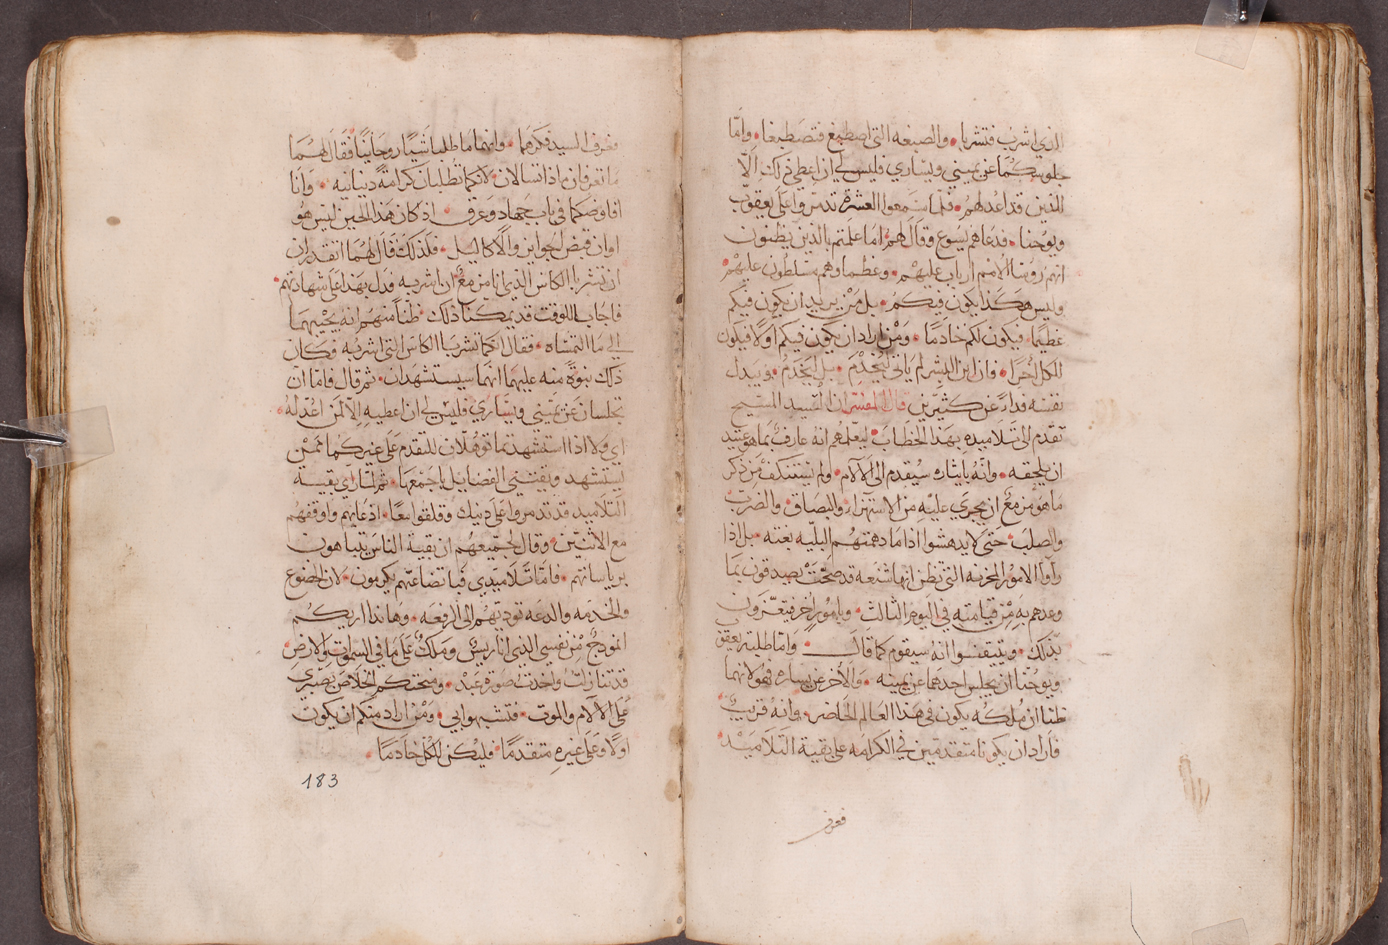 الذي اشرب فتشربا • والصبغه التى اصطبغ فتصطبغا • وامّا
جلوسكما عن يمينى ويسارى فليس لي ان اعطى ذلك الّا
الذين قد اعد لهم • فلما سمعوا العشرة تذمروا على يعقوب
ويوحنا • فدعاهم يسوع وقال لهم • اما علمتم بالذين يظنون
انهم روسا الامم ارباب عليهم • وعظماوهم مسلطون عليهم •
وليس هكذا يكون فيكم • بل من يريد ان يكون فيكم
عظيما • فيكون لكم خادما • ومن اراد ان يكون فيكم اولا فيكون
للكل اخرا • وان ابن البشر لم ياتى ليُخدم • بل ليَخدم • ويبدل
نفسه فداءً عن كثيرين قال المفسر ان السيد المسيح
تقدم الى تلاميذه بهذا الخطاب • ليعلمهم انه عارف بما هو عتيد
ان يلحقه • وانه بايثاره سيقدم الى الالام • ولم يستنكف من ذكر
ما هو مزمع ان يجرى عليه من الاستهزاء والبصاق • والضرب
والصلب • حتى لا يدهشوا اذا ما دهمتهم البليه بغته • بل اذا
راوا الامور المحزنه التى تظن انها شنعه قد صحت يصدقون بما
وعدهم به من قيامته في اليوم الثالث • وبامور اخر فيتعزون
بذلك • ويتيقنوا انه سيقوم كما قال • واما طلبة يعقوب
ويوحنا ان يجلس احدهما عن يمينه • والاخر عن يساره فهو لانهما
ظنا ان ملكه يكون فى هذا العالم الحاضر • وانه قريب •
فارادا ان يكونا متقدمين في الكرامه على بقية التلاميذ •
فعرف
فعرف السيد فكرهما • وانهما ما طلبا شيًا روحانيًا فقال لهما
ما تعرفان ماذا تسالان • لانكما تطلبان كرامة دنيانيه • وانا
افاوضكما فى باب جهاد وعرق • اذ كان هذا الحين ليس هو
اوان قبض الجوايز والاكاليل • فلذلك قال لهما اتقدران
ان تشربا الكاس الذى انا مزمع ان اشربه فدل بهذا على شهادتهم •
فاجابا للوقت قد يمكننا ذلك • ظنًا منهم انه يجيبهما
الي ما التمساه • فقال انكما تشربا الكاس التى اشربه وكان
ذلك نبوة منه عليهما انهما سيستشهدان • ثم قال فاما ان
تجلسان عن يمينى ويسارى فليس لى ان اعطيه الا لمن اعد له •
اى ولا اذا استشهدتما توهلان للتقدم على غيركما ممن
يستشهد ويقتنى الفضايل باجمعها • ثم لما راى بقيت
التلاميذ قد تذمروا على ذينك وقلقوا معًا • ادعاهم واوقفهم
مع الاثنين • وقال لجميعهم ان بقية الناس يتباهون
برياساتهم • فاما تلاميذى فباتضاعهم يكرمون • لان الخضوع
والخدمه والدعه تودتهم الى الرفعه • وهانذا اريكم
انموذج من نفسى الذى انا ريس وملك على ما فى السموات والارض •
قد تنازلت واخذت صورة عبد • ومنحتكم الخلاص بصبري
على الالام والموت • فتشبهوا بي • ومن اراد منكم ان يكون
اولا وعلى غيره متقدمًا • فليكن للكل خادمًا •
183